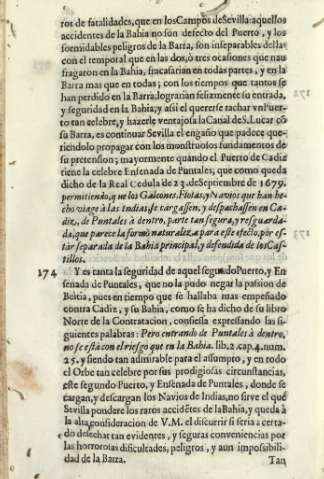 ros de fatalidades, que en los Campos de Sevilla: aquellos
accidentes de la Bahia no son defecto del Puerto, y los
formidables peligros de la Barra, son inseparables della
con el temporal que en las dos, ò tres ocasiones que nau
fragaron en la Bahia, fracasarian en todas partes, y en la
Barra mas que en todas; con los tiempos que tantos se
han perdido en la Barra, lograrian felizmente su entrada,
y seguridad en la Bahia; y assi el quererse tachar vn Puer-
to tan celebre, y hazerle ventajosa la Canal de S. Lucar cõ
su Barra, es continuar Sevilla el engaño que padece que-
riendolo propagar con los monstruosos fundamentos de
su pretension; mayormente quando el Puerto de Cadiz
tiene la celebre Ensenada de Puntales, que como queda
dicho de la Real Cedula de 23. de Septiembre de 1679.
permitiendo, que los Galeones, Flotas, y Navios que han he-
cho viage à las Indias, se cargassen, y despachassen en Ca-
diz, de Puntales à dentro, parte tan segura, y resguarda-
da, que parece la formò naturaleza para este efecto, por es-
tar separada de la Bahia principal, y defendida de los Cas-
tillos.
174 Y es tanta la seguridad de aquel segundo Puerto, y En
senada de Puntales, que no la pudo negar la passion de
Beitia, pues en tiempo que se hallaba mas empeñado
contra Cadiz, y su Bahia, como se ha dicho de su libro
Norte de la Contratacion, confiessa expressando las si-
guientes palabras: Pero entrando de Puntales à dentro,
no se està con el riesgo que en la Bahia. lib. 2. cap. 4. num.
25. y siendo tan admirable para el assumpto, y en todo
el Orbe tan celebre por sus prodigiosas circunstancias,
este segundo Puerto, y Ensenada de Puntales, donde se
cargan, y descargan los Navios de Indias, no sirve el que
Sevilla pondere los raros accidẽtes de la Bahia, y queda à
la alta consideracion de V. M. el discurrir si seria acerta-
do desechar tan evidentes, y seguras conveniencias por
las horrorosas dificultades, peligros, y aun impossibili-
dad de la Barra.
Tan